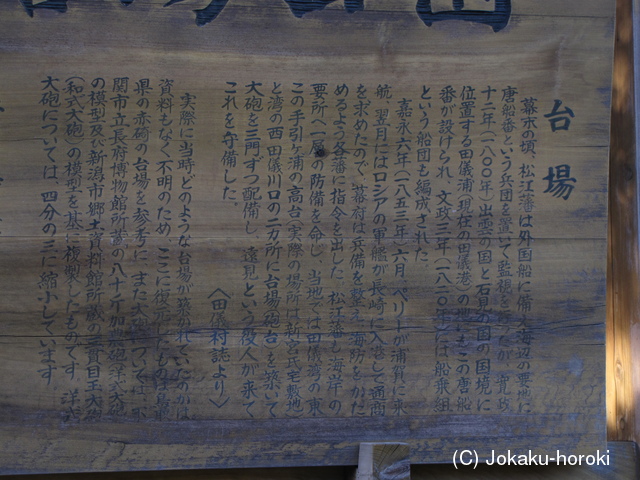 台場
幕末の頃、松江藩は外国船に備え海辺の要地に
唐船番という兵団を置いて監視を
十二年(一八〇〇年)出雲の国と石見の国の国境に
位置する田儀浦(現在の田儀港)の地にもこの唐船
番が設けられ、文政三年(一八二〇年)には船乗組
という船団も編成された。
嘉永六年(一八五三年)六月、ペリーが浦賀に来
航、翌月にはロシアの軍艦が長崎に入港して通商
を求めたので、幕府は兵備を整え、海防をかた
めるよう各藩に指令を出した。松江藩も海岸の
要所へ一層の防備を命じ、当地では田儀湾の東
この手引ヶ浦の高台(実際の場所は新宮氏宅敷地)
と湾の西、田儀川口の二カ所に台場(砲台)を築いて
大砲を三門ずつ配備し、遠見という役人が来て
これを守備した。
〈田儀村誌より〉
実際に当時どのような台場が築かれていたのかは
資料もなく不明のため、ここに復元したものは鳥取
県の赤碕の台場を参考に、また大砲については、下
関市立長府博物館所蔵の八十斤加農砲(洋式大砲)
の模型及び新潟市郷土資料館所蔵の三貫目玉大砲
(和式大砲)の模型を基に複製したものです。洋式
大砲については、四分の三に縮小しています。
(C) Jokaku-horoki